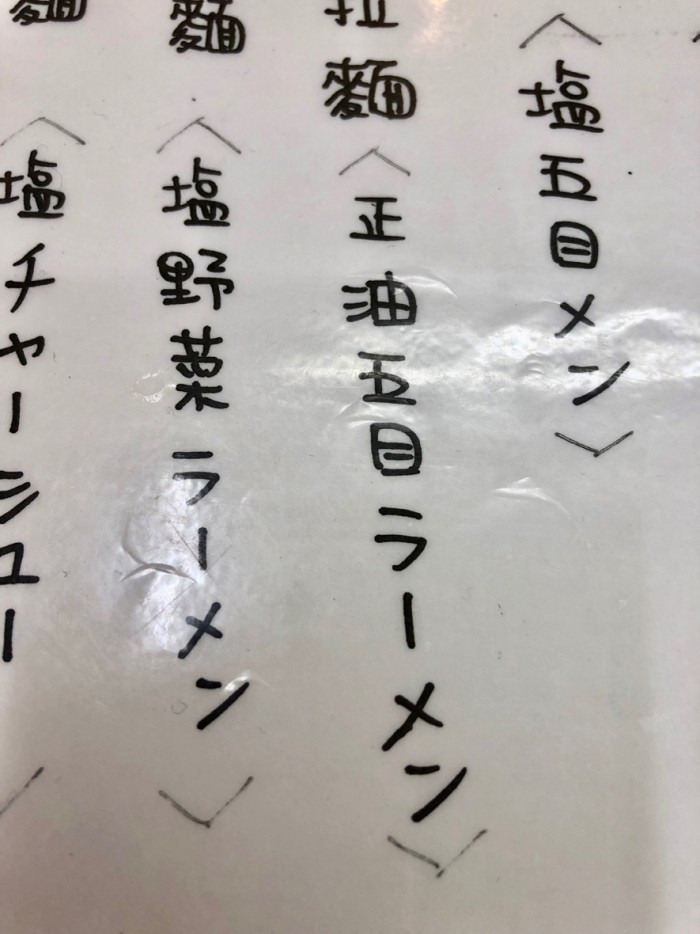 〈塩五目メン〉
拉麵〈正油五目ラーメン〉
麵〈塩野菜ラーメン〉
麵〈塩チャーシュー